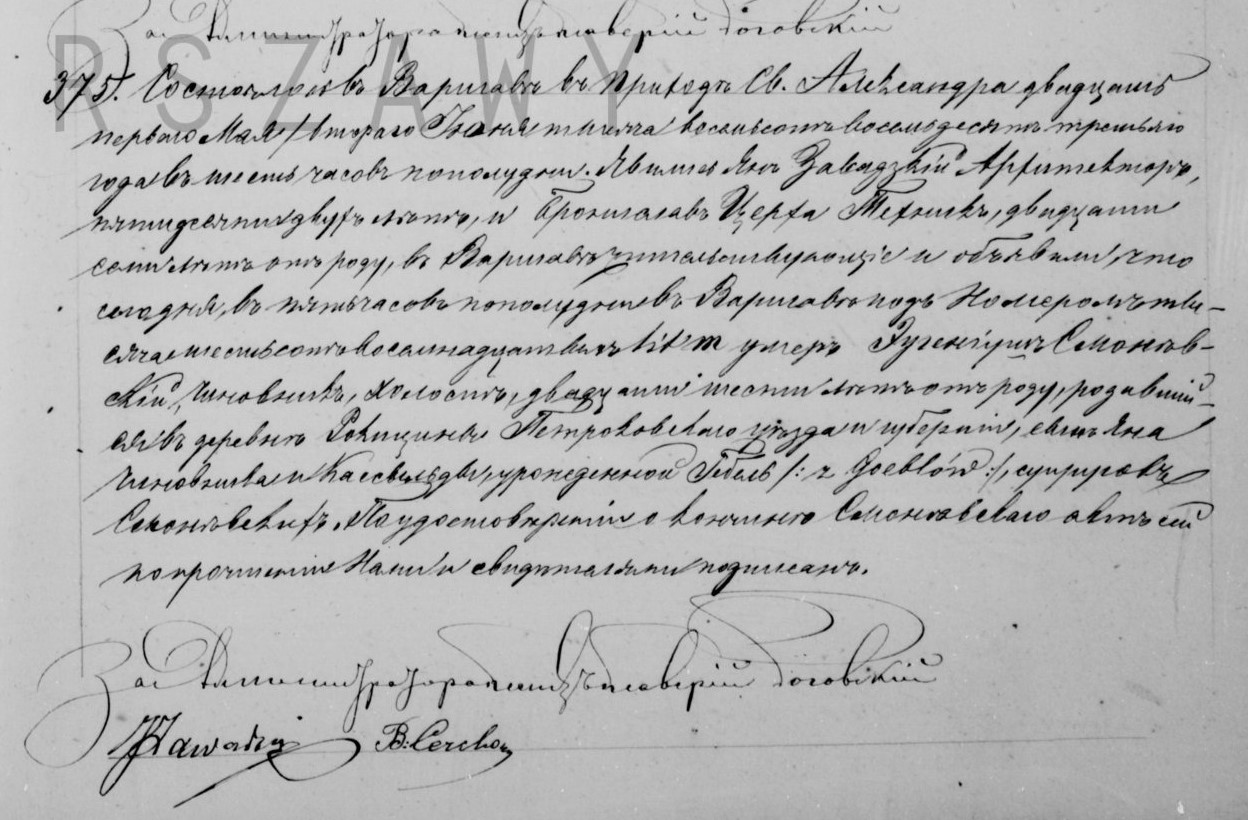 За Администратора ксендзъ Ксаверій Роговскій
RSZAWY
375. Состоялось въ Варшавѣ въ приходѣ Св. Александра двадцать
перваго Мая /втораго Іюня тысяча восемьсотъ восемьдесятъ третьяго
года въ шесть часовъ пополудни. Явились Янъ Завадзкій Архитекторъ,
пятидесяти двухъ лѣтъ, и Брониславъ Церха Техникъ, двадцати
семи лѣтъ отъ роду, въ Варшавѣ жительствующіе и объявили, что
сегодня, въ пять часовъ пополудни въ Варшавѣ подъ Номеромъ ты-
сяча шестьсотъ восемнадцатымъ lit m умеръ Эугеніушъ Смонгѣв-
скій, чиновникъ, холостъ, двадцати шести лѣтъ отъ роду, родивший-
ся въ деревнѣ Рокицины Петроковскаго уѣзда и губерніи, сынъ Яна
чиновника и Кассильды, урожденной Гебль /: z Goeblów :/, супруговъ
. По удостовѣреніи о кончинѣ актъ сей
по прочтеніи Нами и свидѣтелями подписанъ.
За Администратора ксендзъ Ксаверій Роговскій
JZawadzki B. Cercha